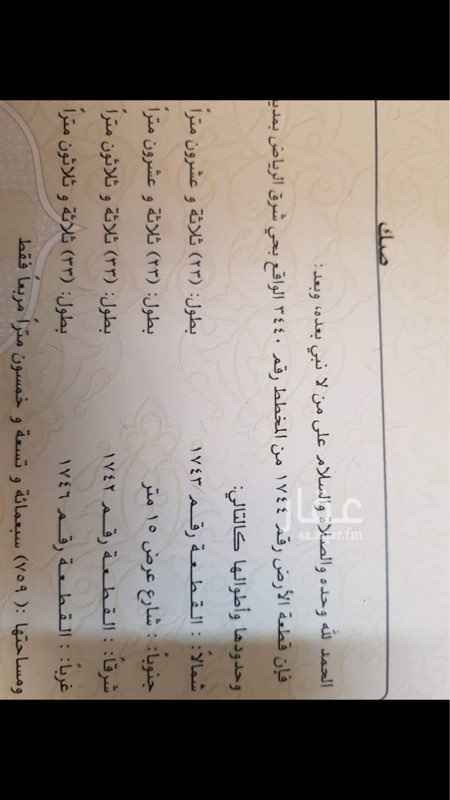 صك
الحمد لله وحده والصلاة والسلام على من لا نبي بعده، وبعد:
فإن قطعة الأرض رقم ١٧٤٤ من المخطط رقم ٣٤٤٠ الواقع بحي شرق الرياض
وحدودها وأطوالها كالتالي:
شمالاً: : القطعة رقم ١٧٤٣ بطول: (٢٣) ثلاثة و عشرون متراً
جنوباً: : شارع عرض ١٥ متر بطول: (٢٣) ثلاثة و عشرون متراً
شرقاً: : القطعة رقم ١٧٤٢ بطول: (٣٣) ثلاثة و ثلاثون متراً
غرباً: : القطعة رقم ١٧٤٦ بطول: (٣٣) ثلاثة و ثلاثون متراً
ومساحتها :( ٧٥٩) سبعمائة و تسعة و خمسون متراً مربعاً فقط
عقار
sa.aqar.fm